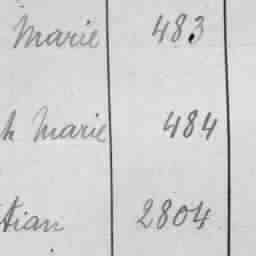 Marie 483
h Marie 484
tian 2804